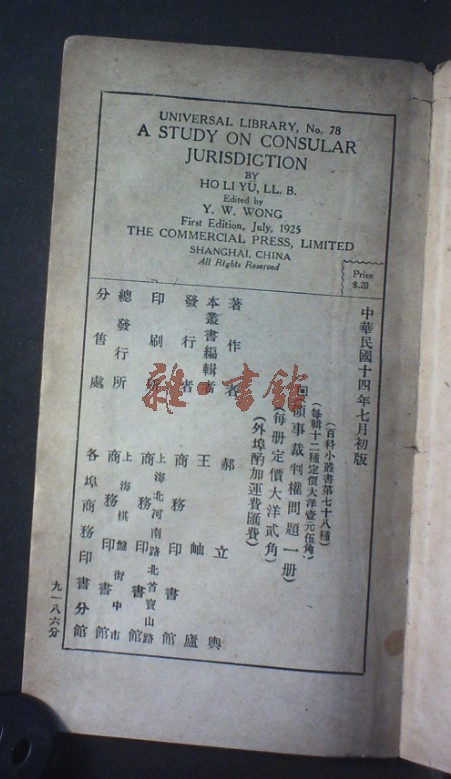 UNIVERSAL LIBRARY, No. 78
A STUDY ON CONSULAR
JURISDICTION
BY
HO LI YÜ, LL. B.
Edited by
Y. W. WONG
First Edition, July, 1925
THE COMMERCIAL PRESS, LIMITED
SHANGHAI, CHINA
All Rights Reserved
Price
$.20
中華民國十四年七月初版
(百科小叢書第七十八種)
(每輯十二種定價大洋壹元伍角)
領事裁判權問題一册
(每册定價大洋貳角)
(外埠酌加運費匯費)
著作者 郝立輿
本叢書編輯者 王岫廬
發行者 商務印書館
印刷所 上海北河南路北首寶山路 商務印書館
總發行所 上海棋盤街中市 商務印書館
分售處 各埠商務印書分館
九一八六分
雜·書館